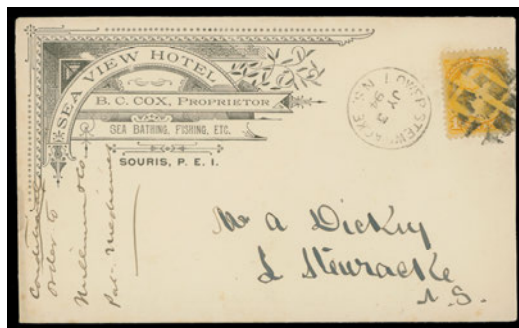 SEA VIEW HOTEL
B. C. COX, PROPRIETOR
SEA BATHING, FISHING, ETC.
SOURIS, P. E. I.
LOWER STEWIACKE N.S.
JY 3
94
Mr A Dickey
L Stewiacke
N.S.
order to